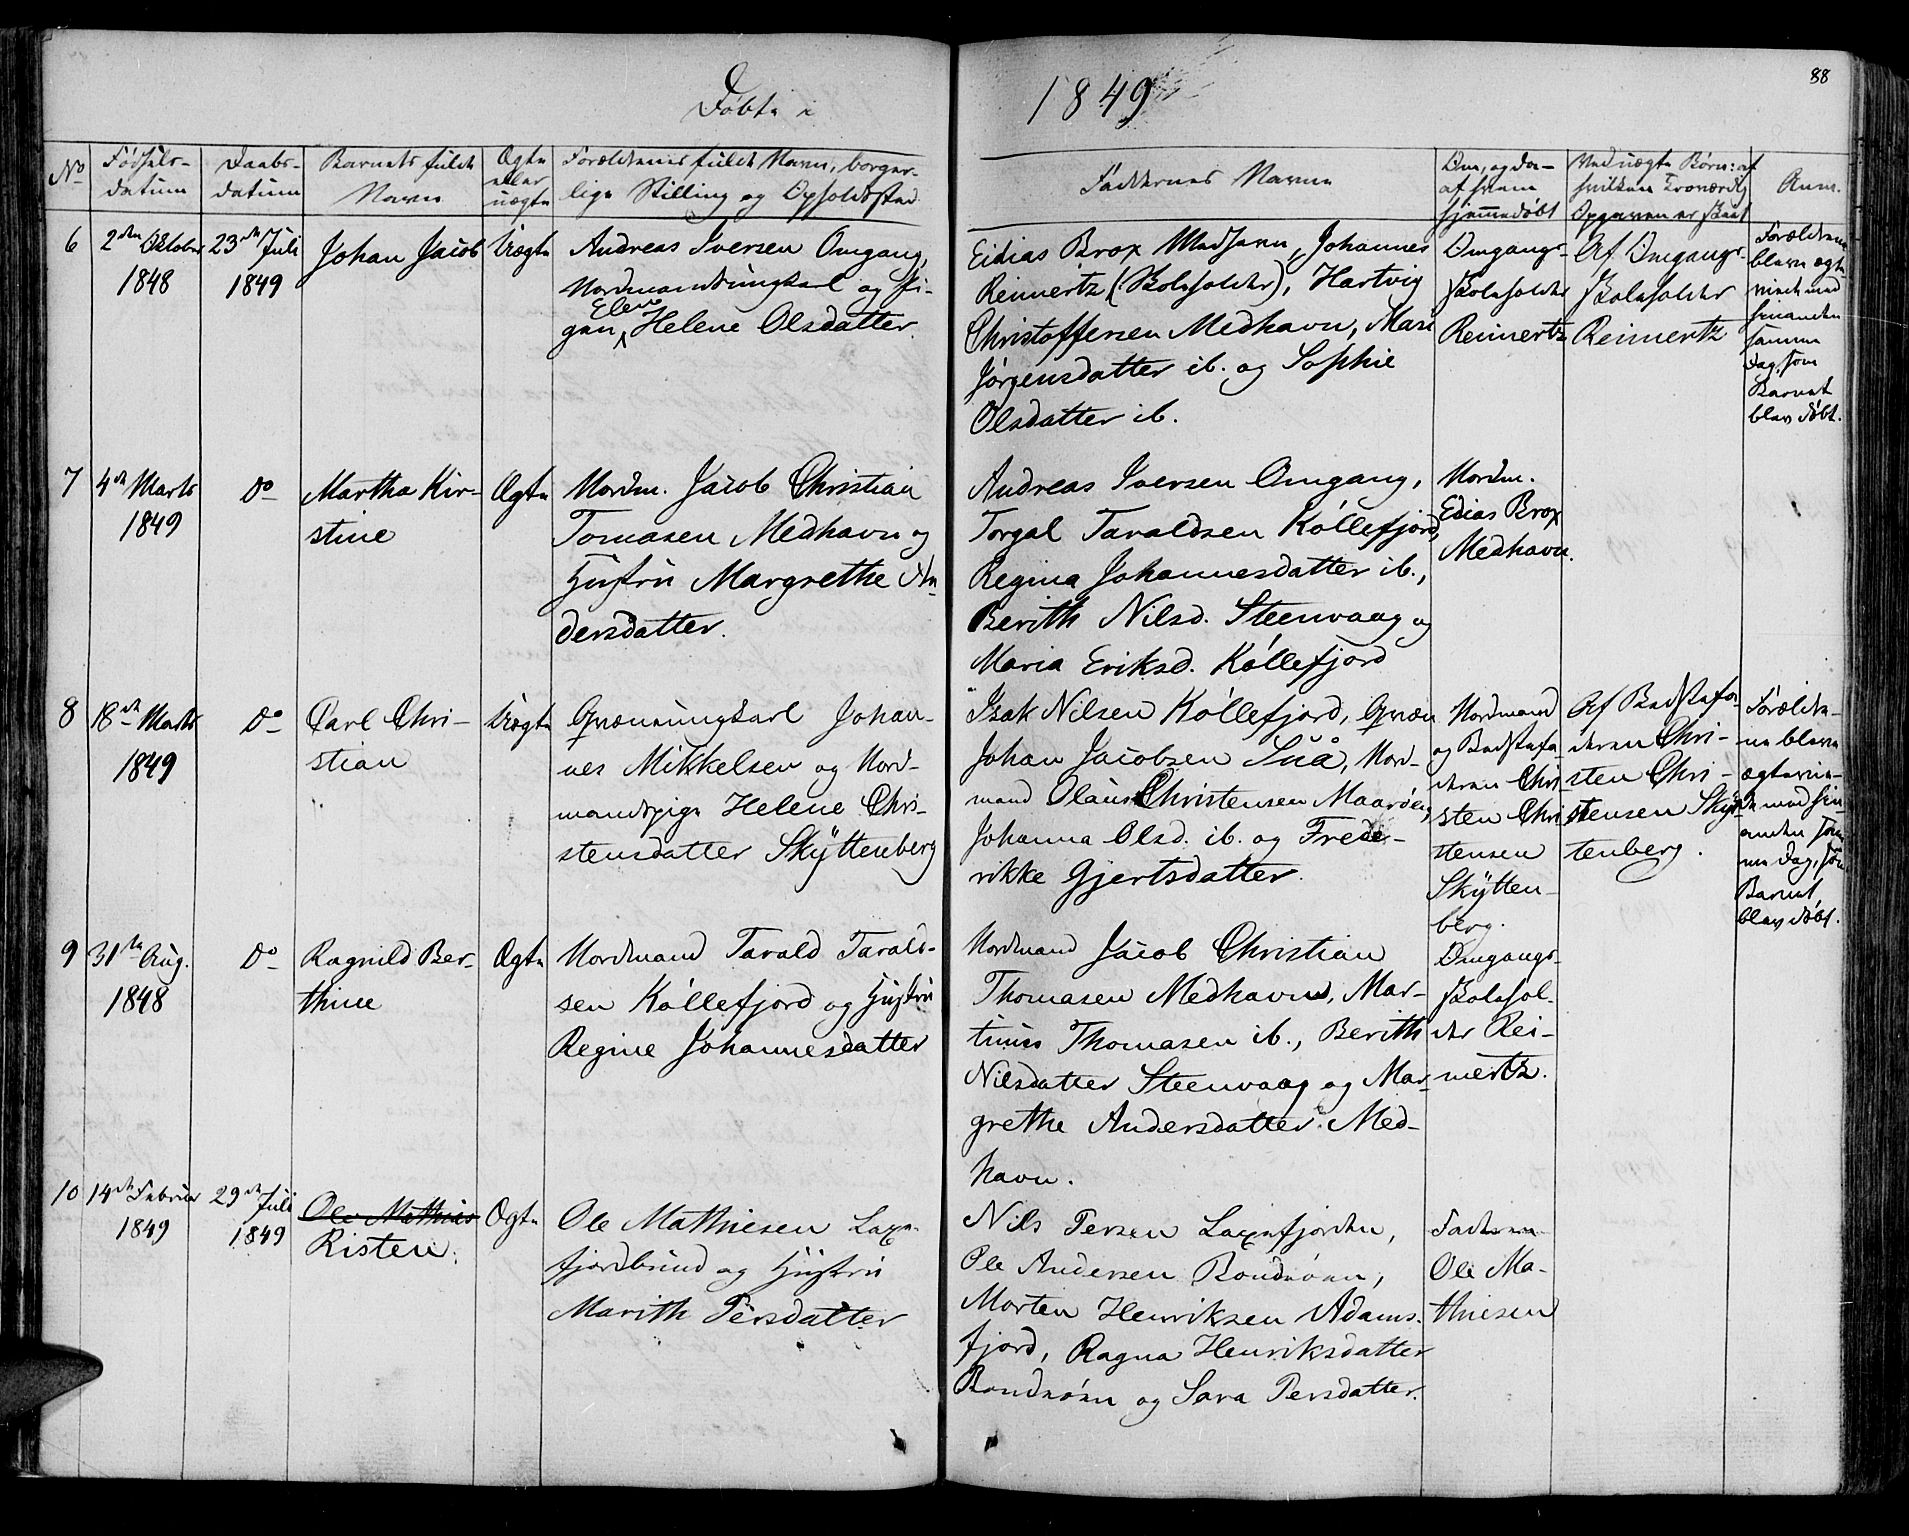 88
Døbte i 1849
No
Fødsels-
datum
Daabs-
datum
Barnets fulde
Navn
Ægte
eller
uægte
Forældrenes fulde Navn, borger-
lige Stilling og Opholdssted
Faddernes Navne
Om, og da
af hvem
hjemmedøbt
Ved uægte Børn: af
hvilken troværdig
Opgaven er skeet
Anm.
6
2den Oktober
1848
23de Juli
1849
Johan Jacob
Uægte
Andreas Iversen Omgang,
Nordmandsungkarl og Pi-
gen Elen Helene Olsdatter
Eidias Brox Medhavn, Johannes
Reinertz (Skoleholder), Hartvig
Christoffersen Medhavn, Mari
Jørgensdatter ib. og Sophie
Olsdatter ib.
Omgangs-
skoleholder
Reinertz
Af Omgangs-
skoleholder
Reinertz
Forældrene
bleve ægte-
viede med
hinanden
samme
Dag, som
Barnet
blev døbt.
7
4de Marts
1849
Do
Martha Kir-
stine
Ægte
Nordm. Jacob Christian
Tomasen Medhavn og
Hustru Margrethe An-
dersdatter.
Andreas Iversen Omgang,
Torgal Taraldsen Kóllefjord,
Regina Johannesdatter ib.,
Berith Nilsd. Steenvaag og
Maria Eriksd. Kóllefjord
Nordm.
Edias Brox
Medhavn.
8
18de Marts
1849
Do
Carl Chri-
stian
Uægte
Qvænungkarl Johan-
nes Mikkelsen og Nord-
mandspige Helene Chri-
stensdatter Skÿttenberg
Isak Nilsen Kóllefjord, Qvæn
Johan Jacobsen Suå, Nord-
mand Olaus Christensen Maarøen,
Johanna Olsd. ib. og Frede-
rikke Gjertsdatter.
Nordmand
og Bedstefa
deren Chri
sten Chri
stensen
Skÿtten-
berg.
Af Bedstefa-
deren Chri-
sten Chri-
stensen Skÿt
tenberg.
Forældre-
ne bleve
ægtevie-
de med hin-
anden sam-
me Dag, som
Barnet
blev døbt.
9
31te Aug.
1848
Do
Ragnild Ber-
thine
Ægte
Nordmand Tarald Tarald-
sen Kóllefjord og Hustru
Regine Johannesdatter
Nordmand Jacob Christian
Thomasen Medhavn, Mar-
tinus Thomasen ib., Berith
Nilsdatter Steenvaag og Mar-
grethe Andersdatter Med-
havn.
Omgangs-
skolehol-
der Rei-
nertz.
10
14de Februar
1849
29de Juli
1849
Ole Mathias
Risten.
Ægte
Ole Mathiesen Laxe-
fjordbund og Hustru
Marith Persdatter
Nils Persen Laxefjorden,
Ole Andersen Bondøen,
Morten Henriksen Adams-
fjord, Ragna Henriksdatter
og Sara Persdatter.
Faderen
Ole Ma-
thiesen